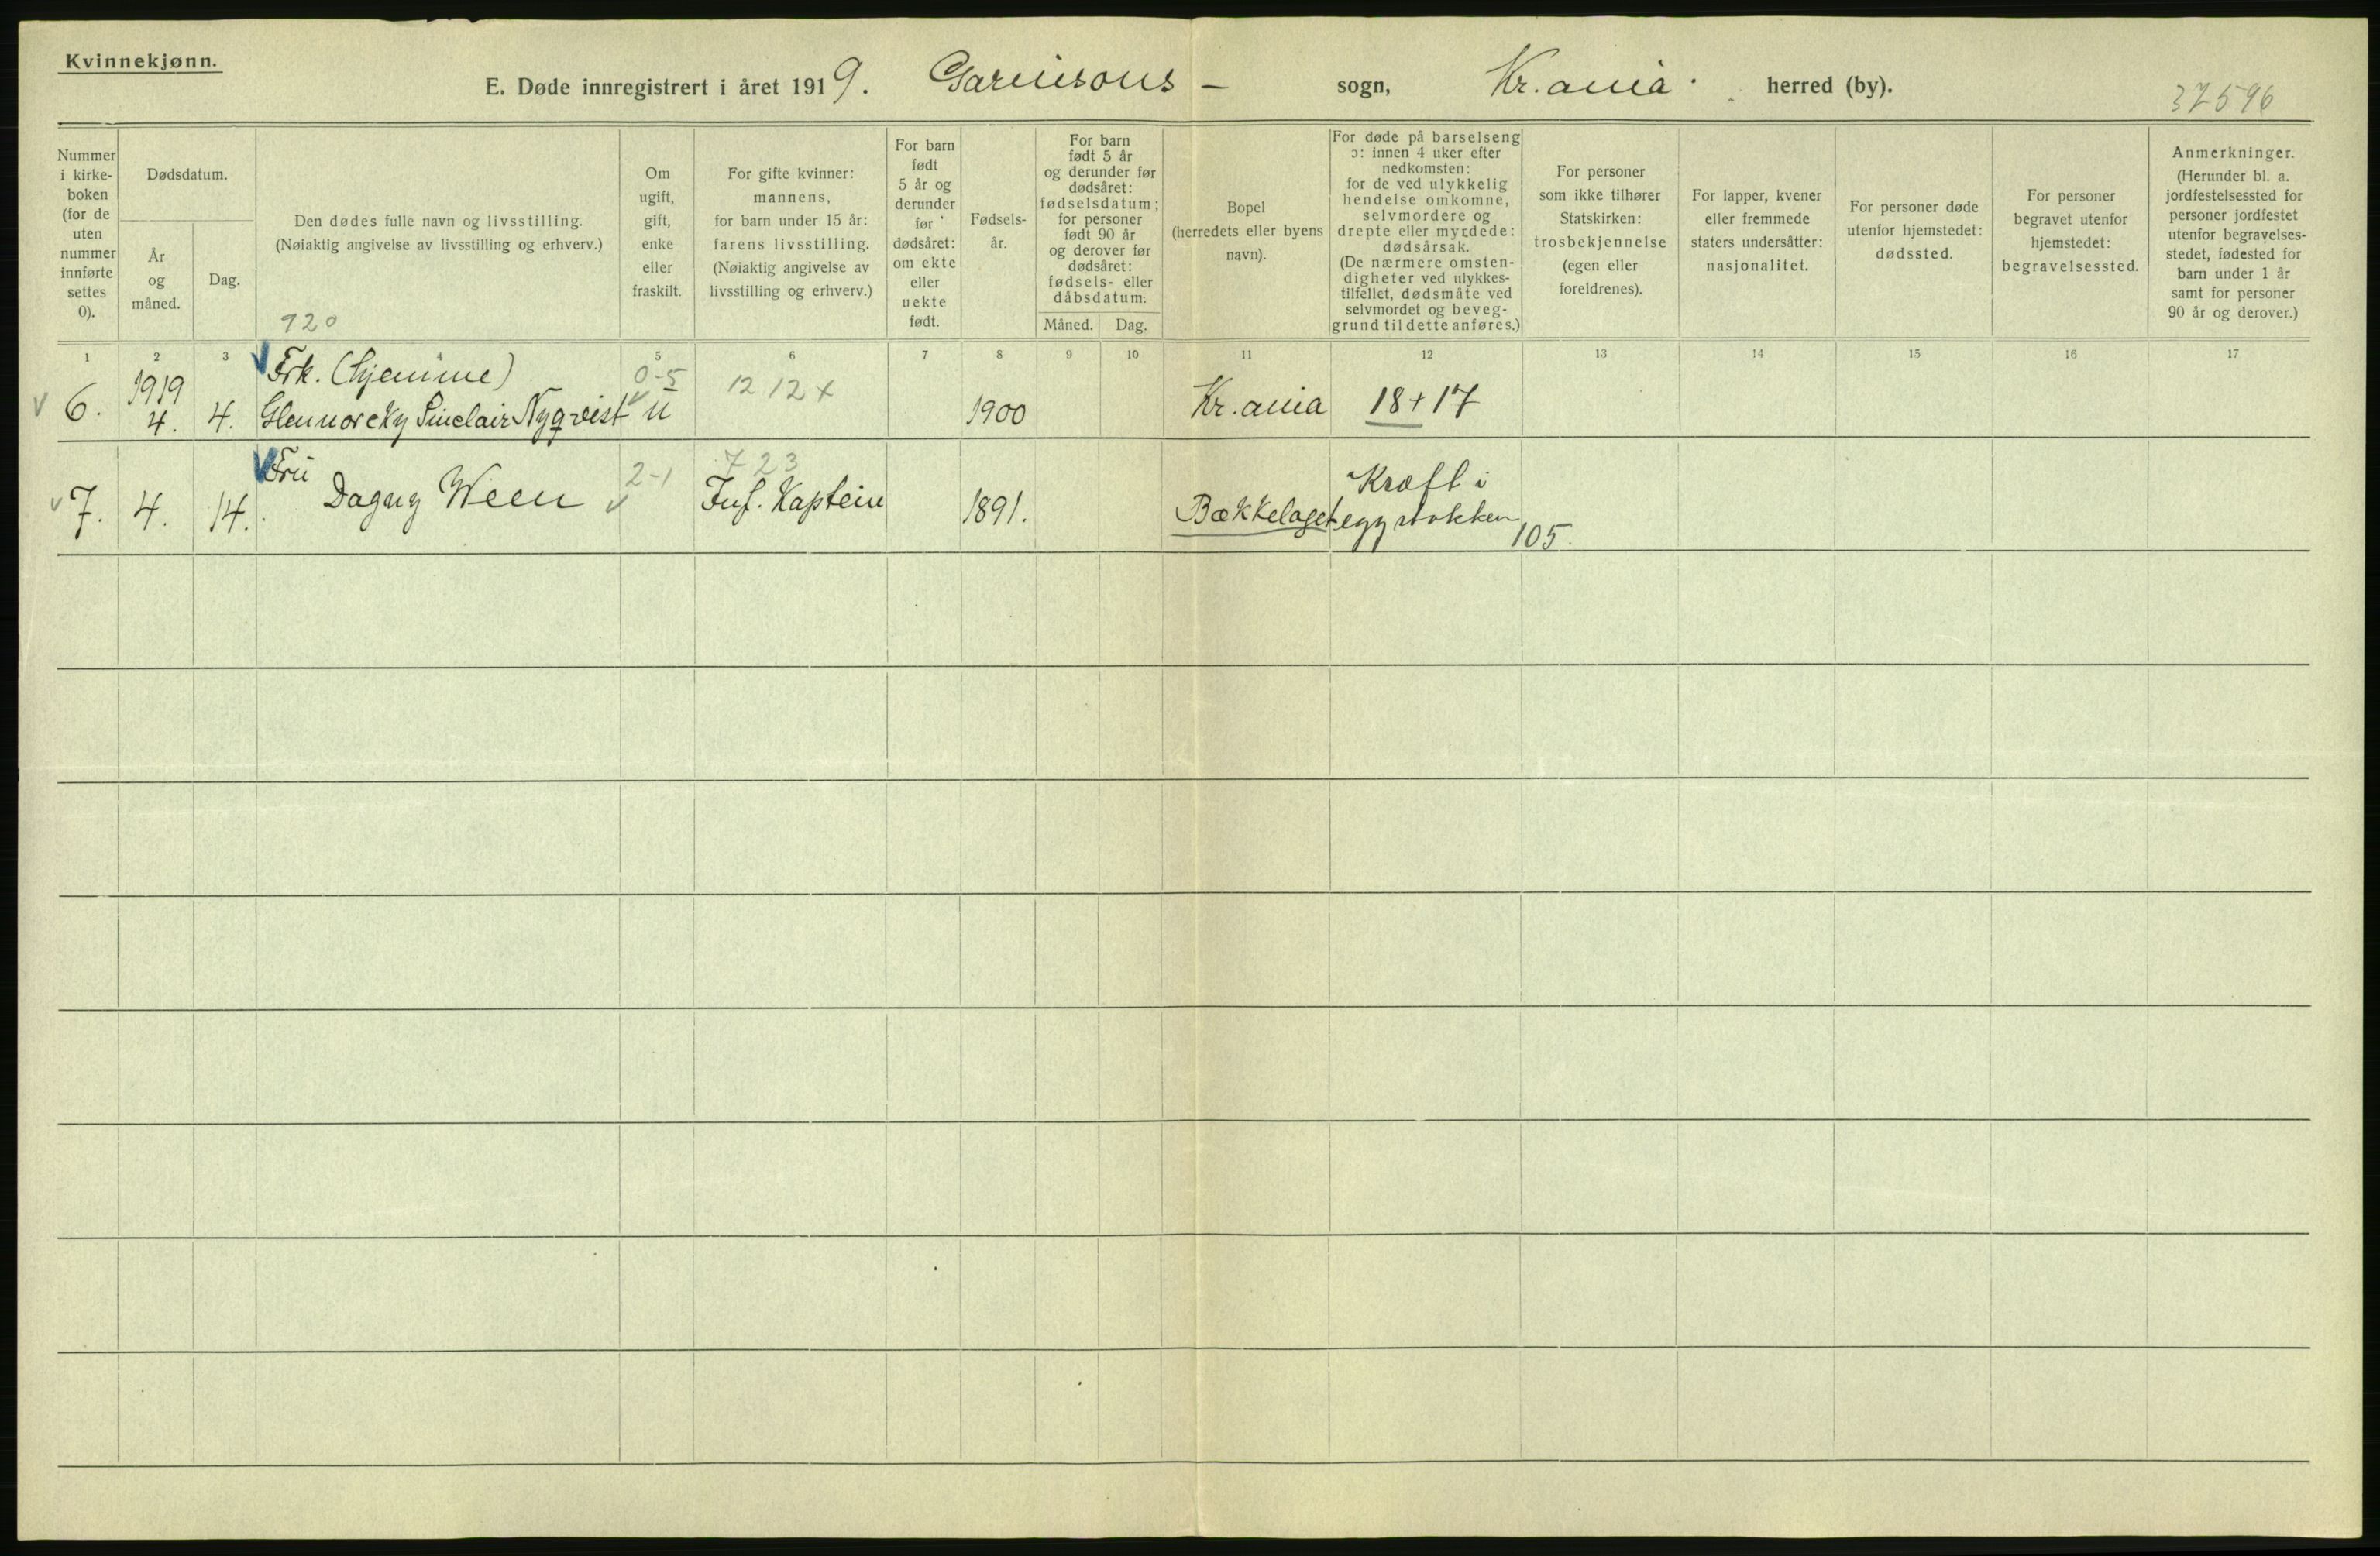 Kvinnekjønn.
E. Døde innregistrert i året 1919. Garnisons - sogn, Kr.ania. herred (by).
37596
Nummer
i kirke-
boken
(for de
uten
nummer
innførte
settes
0).
Dødsdatum.
År
og
måned.
Dag.
Den dødes fulle navn og livsstilling.
(Nøiaktig angivelse av livsstilling og erhverv.)
920
Om
ugift,
gift,
enke
eller
fraskilt.
For gifte kvinner:
mannens,
for barn under 15 år:
farens livsstilling.
(Nøiaktig angivelse av
livsstilling og erhverv.)
For barn
født
5 år og
derunder
før
dødsåret:
om ekte
eller
uekte
født.
Fødsels-
år.
For barn
født 5 år
og derunder før
dødsåret:
fødselsdatum;
for personer
født 90 år
og derover før
dødsåret:
fødsels- eller
dåbsdatum.
Måned.
Dag.
Bopel
(herredets eller byens
navn).
For døde på barselseng
ɔ: innen 4 uker efter
nedkomsten:
for de ved ulykkelig
hendelse omkomne,
selvmordere og
drepte eller myrdede:
dødsårsak.
(De nærmere omsten-
digheter ved ulykkes-
tilfellet, dødsmåte ved
selvmordet og beveg-
grund til dette anføres.)
For personer
som ikke tilhører
Statskirken:
trosbekjennelse
(egen eller
foreldrenes).
For lapper, kvener
eller fremmede
staters undersåtter:
nasjonalitet.
For personer døde
utenfor hjemstedet:
dødssted.
For personer
begravet utenfor
hjemstedet:
begravelsessted.
Anmerkninger.
(Herunder bl. a.
jordfestelsessted for
personer jordfestet
utenfor begravelses-
stedet, fødested for
barn under 1 år
samt for personer
90 år og derover.)
1 2 3 4 5 6 7 8 9 10 11 12 13 14 15 16 17
Frk. (hjemme) 0-5 12 12 x
1919
6. 4. 4. Sinclair Nyqvist u 1900 Kr.ania 18 + 17
Fru 2-1 723 Kræft i
7. 4. 14. Dagny Ween Inf. Kaptein 1891. Bækkelaget eggstokken
105.